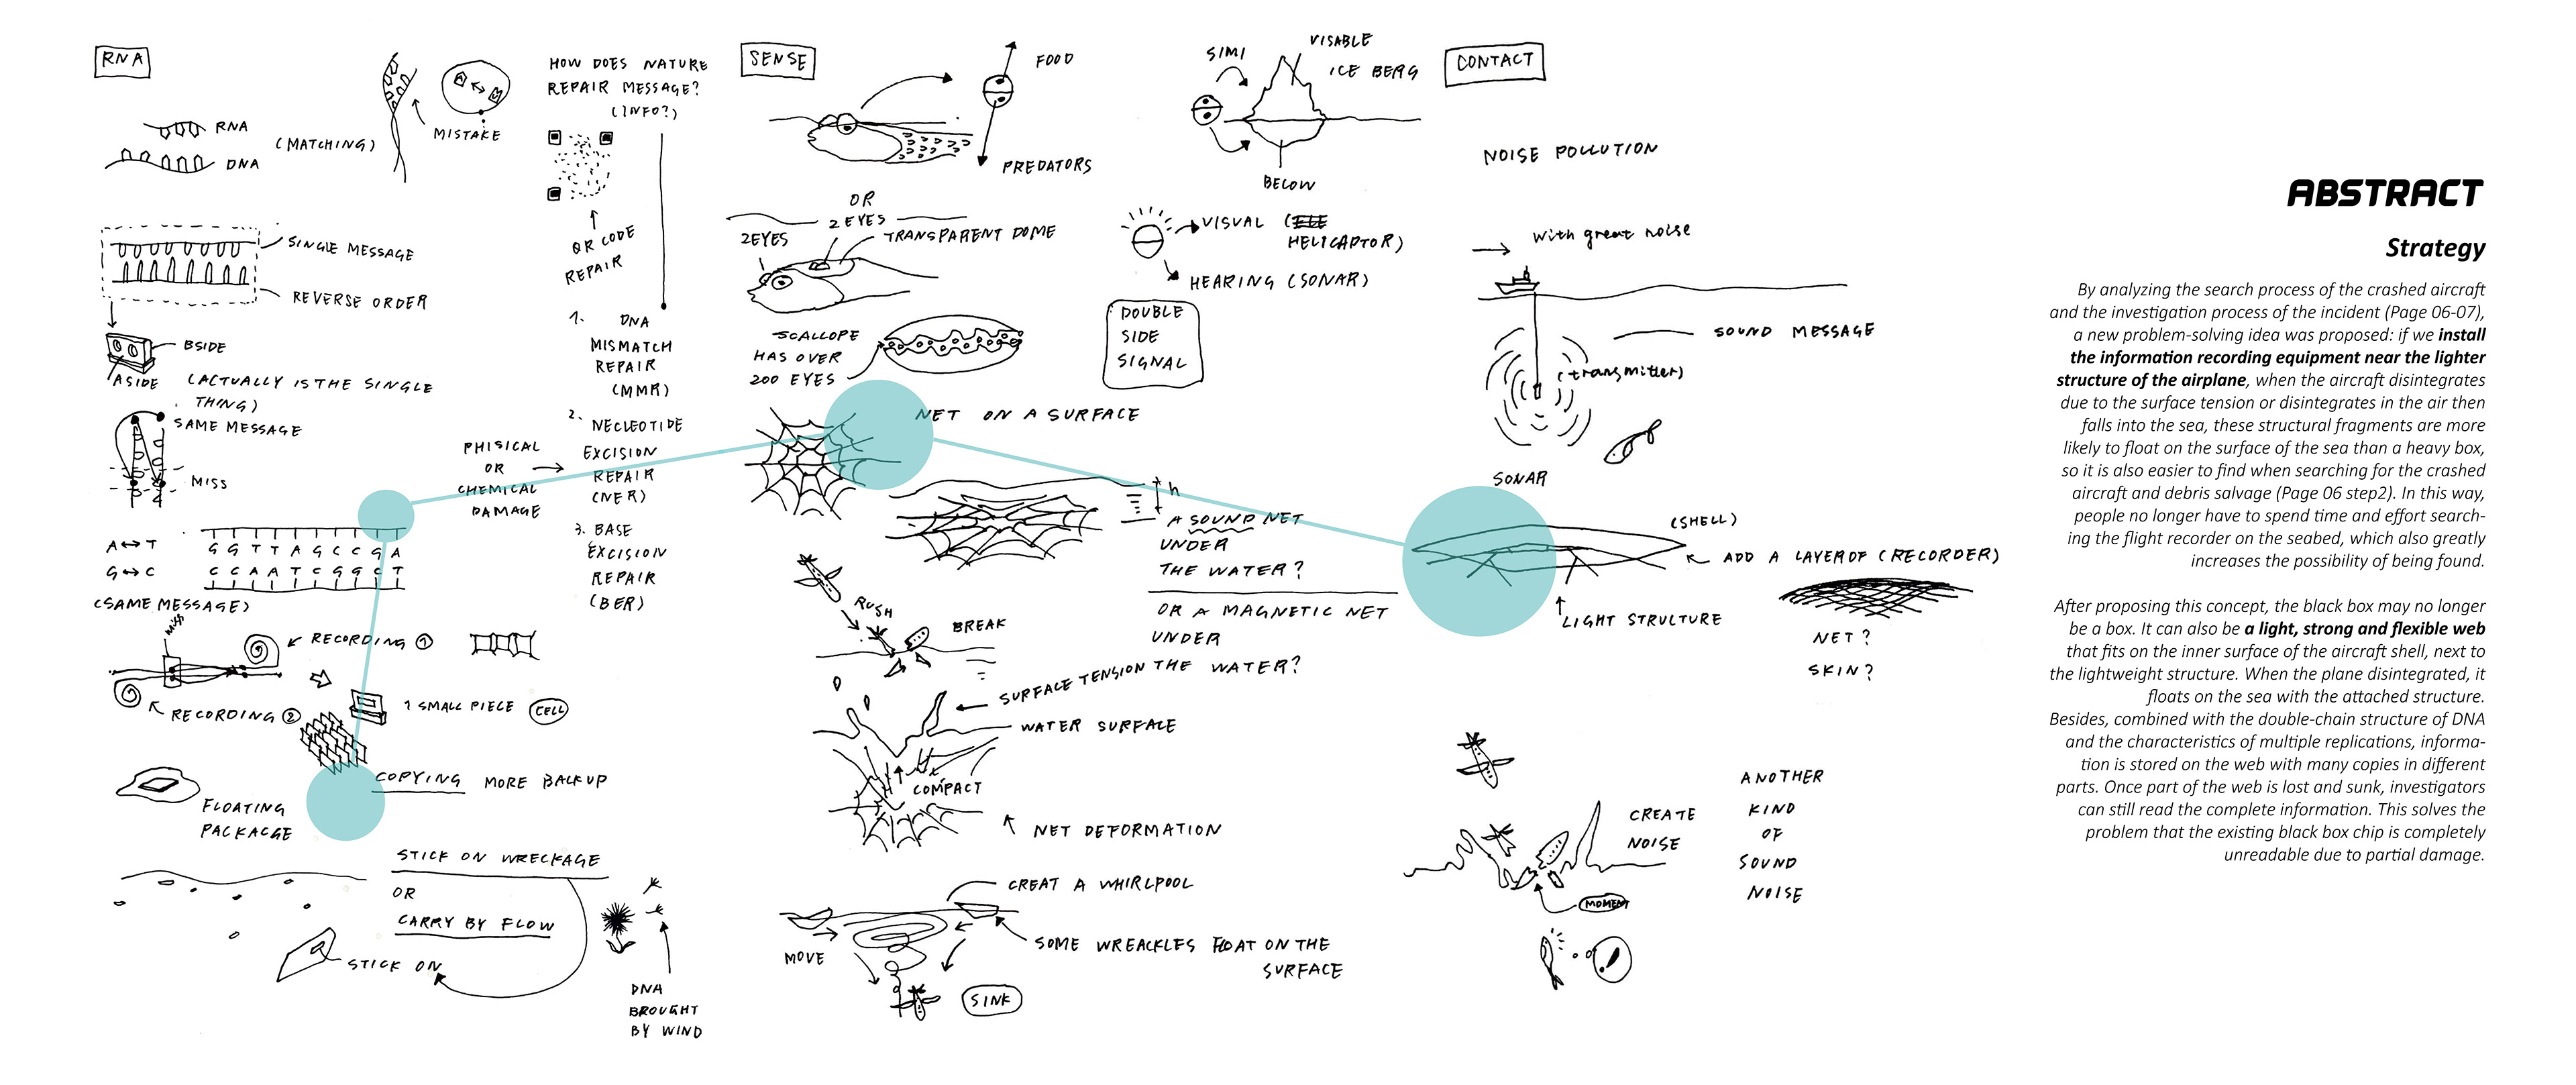 RNA
RNA
DNA
(MATCHING)
MISTAKE
HOW DOES NATURE
REPAIR MESSAGE?
(INFO?)
QR CODE
REPAIR
SINGLE MESSAGE
REVERSE ORDER
BSIDE
ASIDE
(ACTUALLY IS THE SINGLE
THING)
SAME MESSAGE
MISS
PHISICAL
OR
CHEMICAL
DAMAGE
1.
DNA
MISMATCH
REPAIR
(MMR)
2.
NECLEOTIDE
EXCISION
REPAIR
(NER)
3. BASE
EXCISION
REPAIR
(BER)
A↔T
G↔C
(SAME MESSAGE)
G G T T A G C C G A
C C A A T C G G C T
MISS
RECORDING ①
RECORDING ②
1 SMALL PIECE
CELL
COPYING MORE BACKUP
FLOATING
PACKACGE
STICK ON WRECKAGE
OR
CARRY BY FLOW
STICK ON
DNA
BROUGHT
BY WIND
SENSE
FOOD
PREDATORS
OR
2 EYES
2EYES
TRANSPARENT DOME
SCALLOPE
HAS OVER
200 EYES
SIMI
VISABLE
ICE BERG
BELOW
VISUAL (
HELICAPTOR)
HEARING (SONAR)
DOUBLE
SIDE
SIGNAL
NET ON A SURFACE
h
A SOUND NET
UNDER
THE WATER?
OR A MAGNETIC NET
UNDER
THE WATER?
RUSH
BREAK
SURFACE TENSION
WATER SURFACE
COMPACT
NET DEFORMATION
CREAT A WHIRLPOOL
MOVE
SOME WREACKLES FLOAT ON THE
SURFACE
SINK
CONTACT
NOISE POLLUTION
With great noise
SOUND MESSAGE
(transmitter)
SONAR
(SHELL)
ADD A LAYER OF (RECORDER)
LIGHT STRUCTURE
NET?
SKIN?
CREATE
NOISE
MOMENT
ANOTHER
KIND
OF
SOUND
NOISE
ABSTRACT
Strategy
By analyzing the search process of the crashed aircraft
and the investigation process of the incident (Page 06-07),
a new problem-solving idea was proposed: if we install
the information recording equipment near the lighter
structure of the airplane, when the aircraft disintegrates
due to the surface tension or disintegrates in the air then
falls into the sea, these structural fragments are more
likely to float on the surface of the sea than a heavy box,
so it is also easier to find when searching for the crashed
aircraft and debris salvage (Page 06 step2). In this way,
people no longer have to spend time and effort search-
ing the flight recorder on the seabed, which also greatly
increases the possibility of being found.
After proposing this concept, the black box may no longer
be a box. It can also be a light, strong and flexible web
that fits on the inner surface of the aircraft shell, next to
the lightweight structure. When the plane disintegrated, it
floats on the sea with the attached structure.
Besides, combined with the double-chain structure of DNA
and the characteristics of multiple replications, informa-
tion is stored on the web with many copies in different
parts. Once part of the web is lost and sunk, investigators
can still read the complete information. This solves the
problem that the existing black box chip is completely
unreadable due to partial damage.